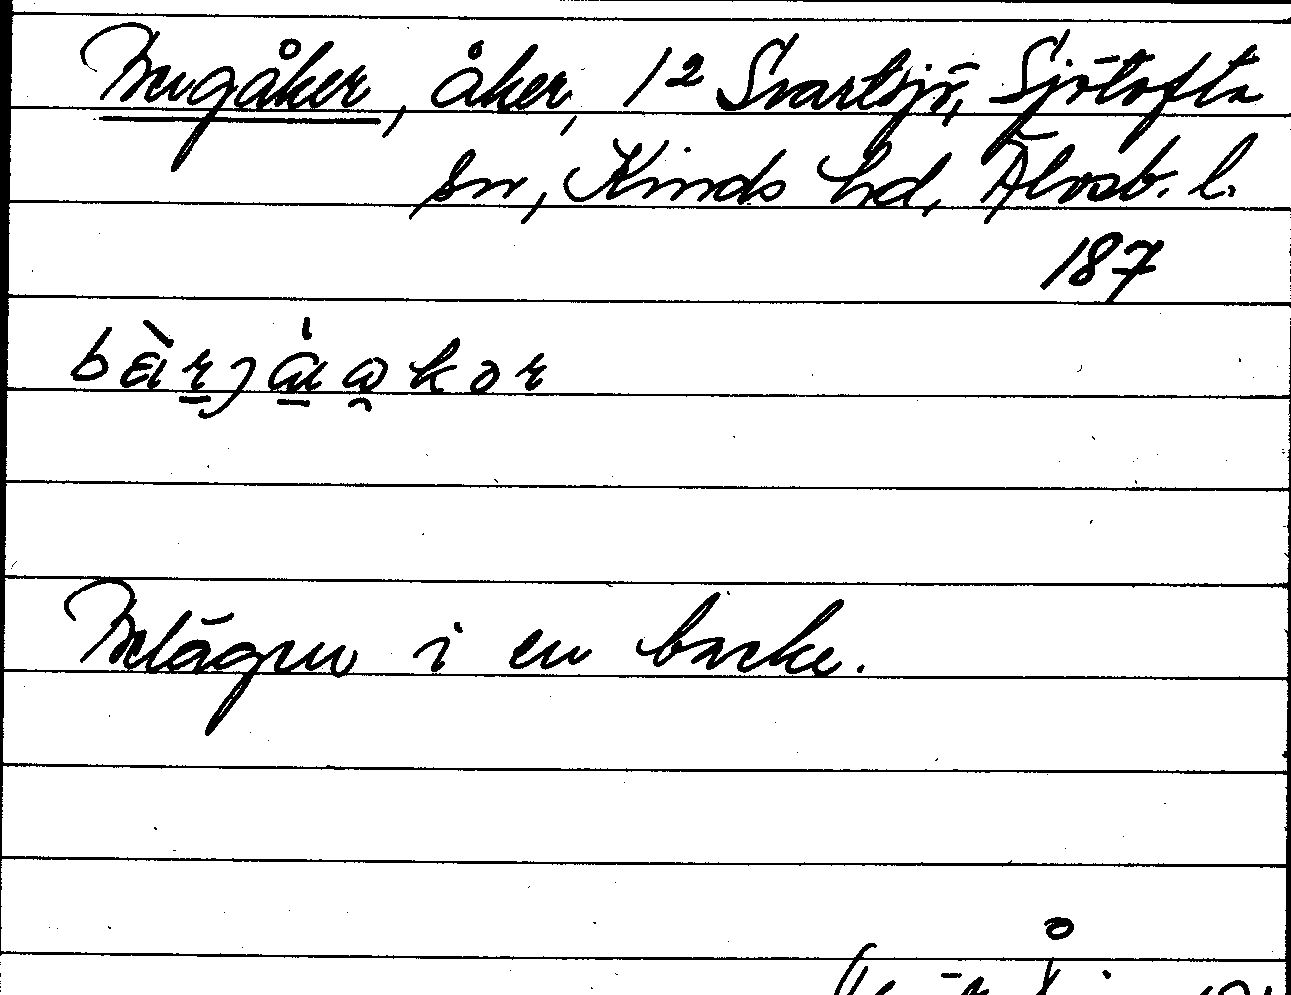 Bergåker, åker, 1² Svartsjö, Sjötofta
sn, Kinds hd, Älvsb. l.
187
Belägen i en backe.